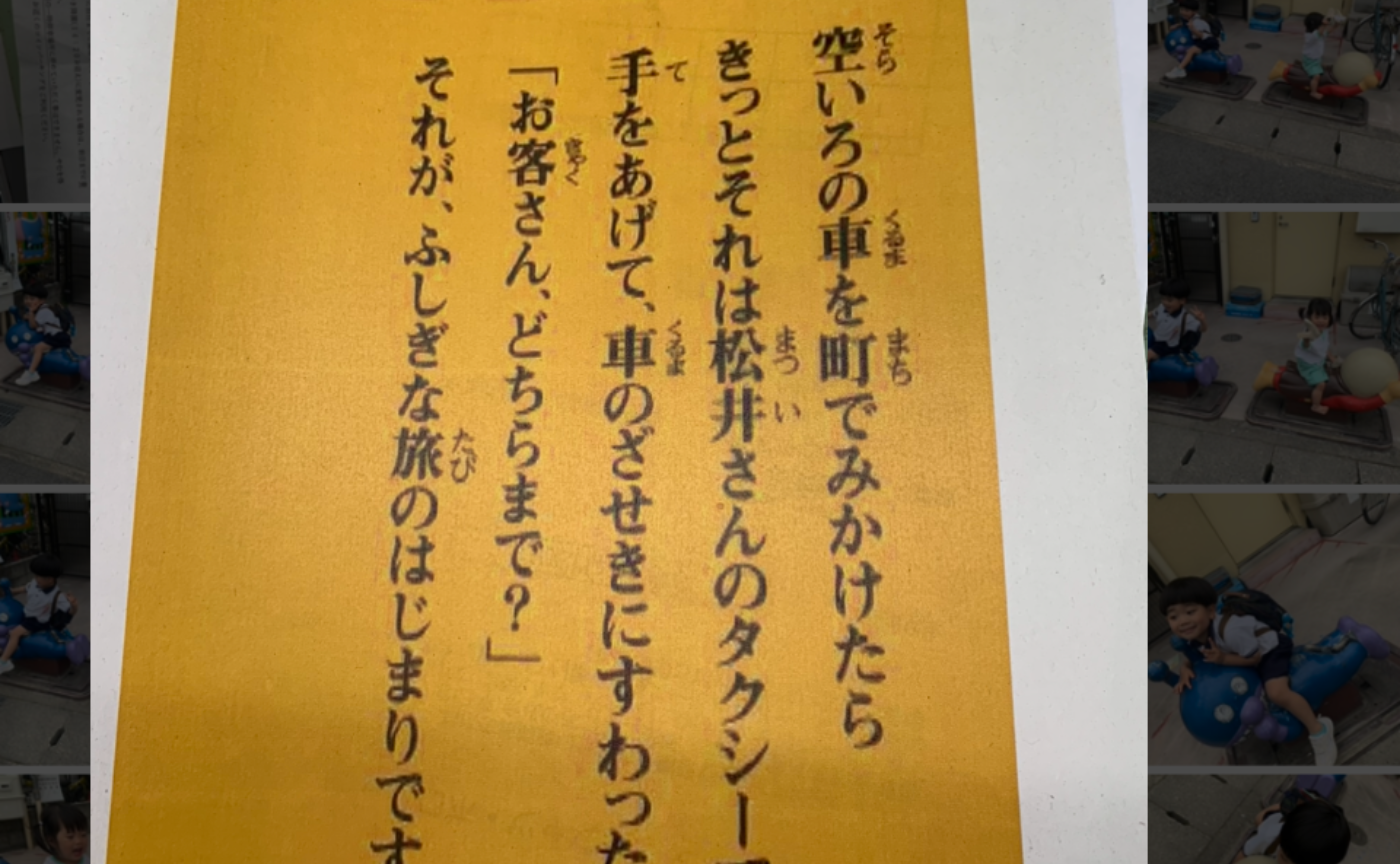 空いろの車を町でみかけたら
きっとそれは松井さんのタクシー
手をあげて、車のざせきにすわった
「お客さん、どちらまで？」
それが、ふしぎな旅のはじまりです